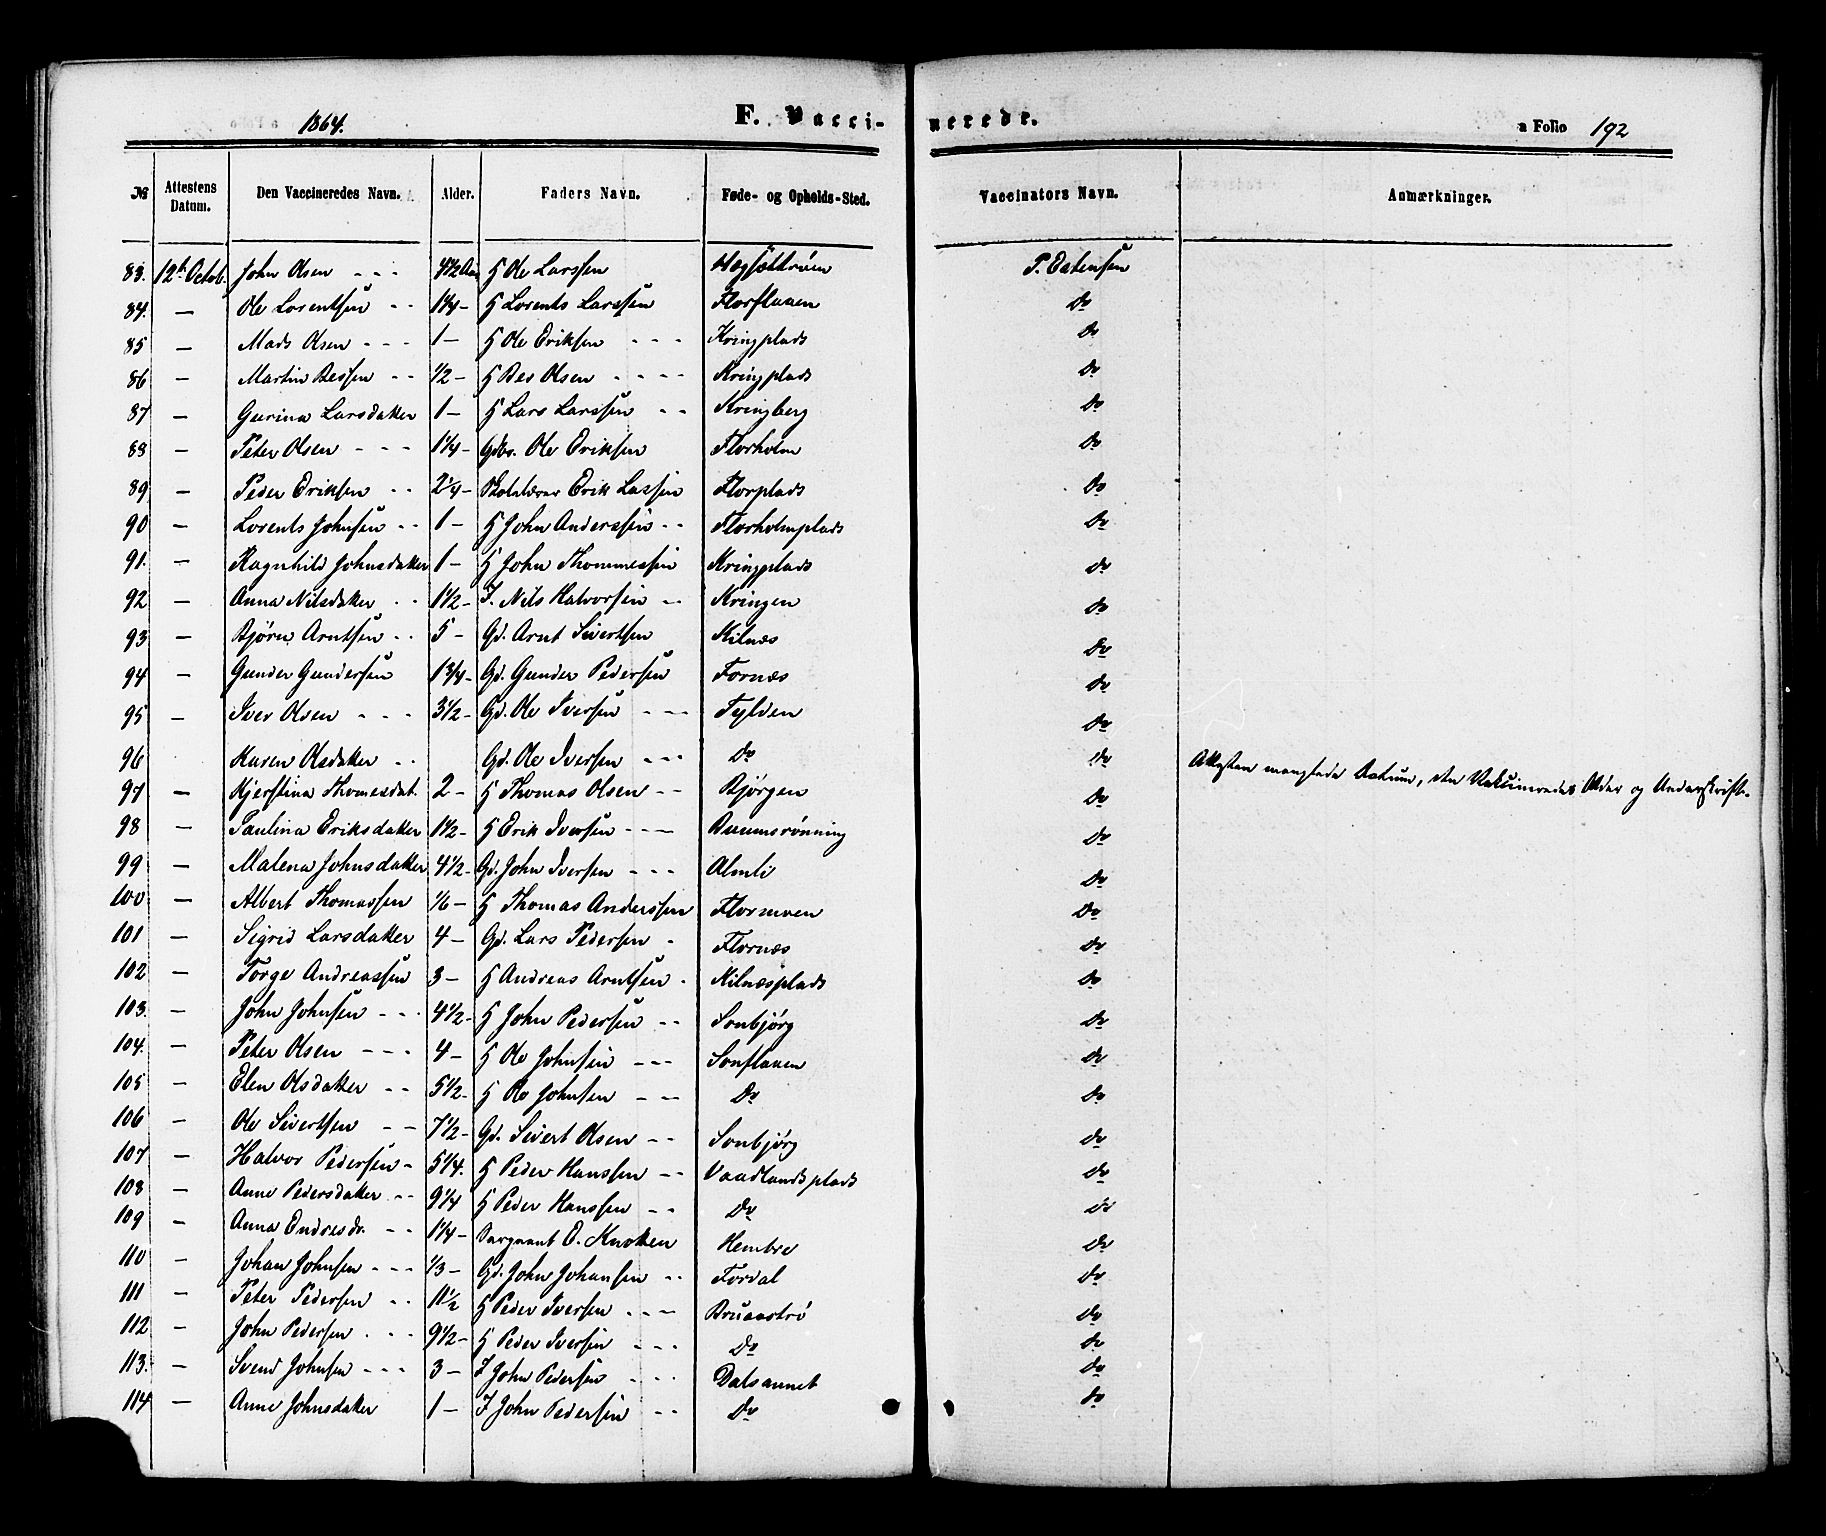 1864. F. Vaccinerede. a Folio 192
№ Attestens Datum. Den Vaccineredes Navn. Alder. Faders Navn. Føde- og Opholds-Sted. Vaccinators Navn. Anmærkninger.
83. 12te Octob. John Olsen - - - 4 1/2 Aar H Ole Larssen P. Estensen
84. — Ole Lorentsen - - 1 1/4 - H Lorents Larssen Florflaaen Do
85 — Mads Olsen - - - 1 - H Ole Eriksen - - - Kringplads Do
86 — Martin - - 1/2 - H Olsen - - - - Kringplads Do
87 — Gurina Larsdatter 1 - H Lars Larssen - - Kringberg Do
88 — Peter Olsen - - - 1 1/4 - Gdbr. Ole Eriksen Florholm Do
89 — Peder Eriksen - - 2 1/4 - Skolelærer Erik Lassen Florplads Do
90 — Lorents Johnsen - - 1 - H John Anderssen - - Florholmplads Do
91. — Ragnhild Johnsdatter 1 - H John Thommessen Kringplads Do
92 — Anna Nilsdatter - - 1 1/2 - I. Nils Halvorsen - - Kringen Do
93 — Bjørn Arntsen - - 5 - Gd. Arnt Sivertsen Kilnæs Do
94 — Gunder Gundersen 1 3/4 - Gd. Gunder Pedersen Fornæs Do
95 — Iver Olsen - - - 3 1/2 - Gd. Ole Iversen - - - Fylden Do
96 Karen Olsdatter - - Gd. Ole Iversen - - - Do Do Attesten manglede Datum, den Vakcineredes Alder og Underskrift.
97 — Kjerstina Thomesdat. 2 - H Thomas Olsen - - Bjørgen Do
98 — Paulina Eriksdatter 1 1/2 - H Erik Iversen - - - Do
99 — Malena Johnsdatter 4 1/2 - Gd. John Iversen - - - Almli Do
100 — Albert Thomassen 1/6 - H Thomas Anderssen Flormoen Do
101 — Sigrid Larsdatter 4 - Gd. Lars Pedersen - Flornæs Do
102 — Torge Andreassen 3 - H Andreas Arntsen - Kilnæsplads Do
103. — John Johnsen - - - 4 1/2 - H John Pedersen - - Sonbjørg Do
104. — Peter Olsen - - - 4 - H Ole Johnsen - - - Sonflaaen Do
105 — Elen Olsdatter - - 5 1/2 - H Ole Johnsen - - - Do Do
106 — Ole Sivertsen - - 7 1/2 - Gd. Sivert Olsen - - Sonbjørg Do
107 — Halvor Pedersen - 5 1/4. H Peder Hanssen - - Vaadlandsplads Do
108 — Anne Pedersdatter - - 9 1/4 H Peder Hanssen - - Do Do
109 — Anna Endresdr. - - 1 1/4 - Sergeant E. Hembre Do
110 — Johan Johnsen - - - 1/3 - Gd. John Johansen - - Fordal Do
111 — Peter Pedersen - - 11 1/2 H Peder Iversen - - - Do
112 — John Pedersen - - - 9 1/2 - H Peder Iversen - - - Do Do
113. — Svend Johnsen - - - 3 - I John Pedersen - - - Dalsaunet Do
114 — Anne Johnsdatter 1 - I John Pedersen - - Do Do